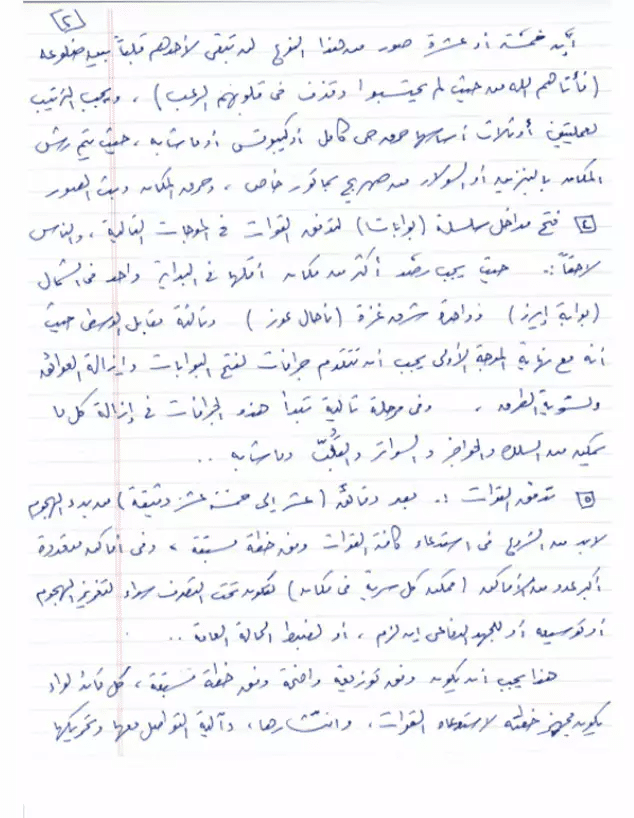 (٢)
أيَّه خمسة أو عشرة صور من هذا النوع لن تبقي لأحدهم قلباً بين ضلوعه
(فأتاهم الله من حيث لم يحتسبوا وقذف في قلوبهم الرعب) ، ويجب الترتيب
لعمليتين أو ثلاث أساسها حرق حي كامل أو كيبوتس أو ما شابه ، حيث يتم رش
المكان بالبنزين أو السولار من صهريج بماتور خاص ، وحرق المكان وبث الصور
٤ فتح مداخل سلسلة (بوابات) لتدفق القوات في الموجات التالية ، والناس
لاحقاً :. حيث يجب رصد أكثر من مكان أقلها في البداية واحد في الشمال
(بوابة إيرز) وواحدة شرق غزة (ناحال عوز) وثالثة مقابل الوسطى حيث
أنه مع نهاية الموجة الأولى يجب أن تتقدم جرافات لفتح البوابات وإزالة العوائق
ولتسوية الطرق ، وفي مرحلة تالية تبدأ هذه الجرافات في إزالة كل ما
يمكن من السلك والحواجز والسواتر وما شابه ..
٥ تدفق القوات :. بعد دقائق (عشر إلى خمسة عشر دقيقة) من بدء الهجوم
لابد من الشروع في استدعاء كافة القوات وفق خطة مسبقة ، وفي أماكن معقودة
أكبر عدد من الأماكن (ممكن كل سرية في مكان) لتكون تحت التصرف سواء لتعزيز الهجوم
أو توسيعه أو للجهد الدفاعي إن لزم ، أو لضبط الحالة العامة ..
هذا يجب أن يكون وفق توزيعة واضحة وفق خطة مسبقة ، كل قائد لواء
يكون مجهز خطته لاستدعاء القوات ، وانتشارها ، وآلية التواصل معها وتحريكها